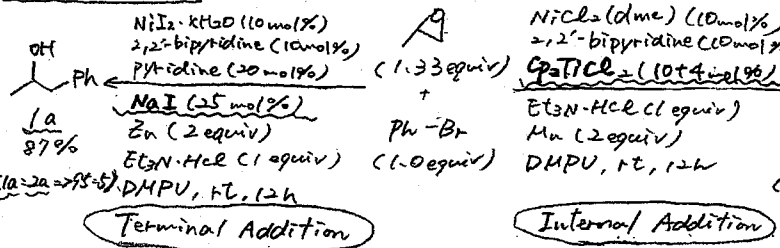 OH
Ph
1a
87%
(1a:2a=>95:5)
NiI₂·xH₂O (10 mol%)
2,2'-bipyridine (10 mol%)
pyridine (20 mol%)
NaI (25 mol%)
Zn (2 equiv)
Et₃N·HCl (1 equiv)
DMPU, rt, 12h
Terminal Addition
O
(1.33 equiv)
+
Ph-Br
(1.0 equiv)
NiCl₂(dme) (10 mol%
2,2'-bipyridine (10 mol%
Cp₂TiCl₂ (10+4 mol%)
Et₃N·HCl (1 equiv)
Mn (2 equiv)
DMPU, rt, 12h
Internal Addition